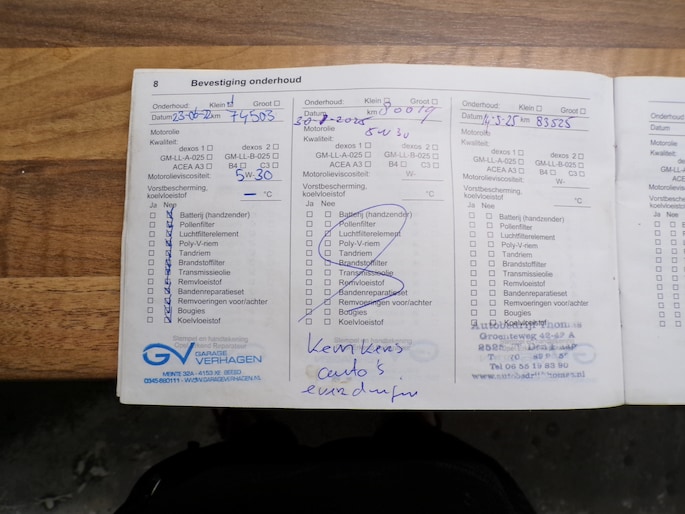 8 Bevestiging onderhoud
Onderhoud: Klein ☑ Groot ☐
Datum 23-06-22 km 74503
Motorolie
Kwaliteit:
dexos 1 ☐ dexos 2 ☐
GM-LL-A-025 ☐ GM-LL-B-025 ☐
ACEA A3 ☐ B4 ☐ C3 ☐
Motorolieviscositeit: 5 W- 30
Vorstbescherming,
koelvloeistof – °C
Ja Nee
Batterij (handzender)
Pollenfilter
Luchtfilterelement
Poly-V-riem
Tandriem
Brandstoffilter
Transmissieolie
Remvloeistof
Bandenreparatieset
Remvoeringen voor/achter
Bougies
Koelvloeistof
Stempel en handtekening
Opel Erkend Reparateur
GV GARAGE
VERHAGEN
0345-680111 - WWW.GARAGEVERHAGEN.NL
Onderhoud: Klein ☐ Groot ☐
Datum km
Motorolie 5 W 30
Kwaliteit:
dexos 1 ☐ dexos 2 ☐
GM-LL-A-025 ☐ GM-LL-B-025 ☐
ACEA A3 ☐ B4 ☐ C3 ☐
Motorolieviscositeit: W-
Vorstbescherming,
koelvloeistof °C
Ja Nee
Batterij (handzender)
Pollenfilter
Luchtfilterelement
Poly-V-riem
Tandriem
Brandstoffilter
Transmissieolie
Remvloeistof
Bandenreparatieset
Remvoeringen voor/achter
Bougies
Koelvloeistof
auto's
Onderhoud: Klein ☐ Groot ☐
Datum 14-5-25 km 83525
Motorolie
Kwaliteit:
dexos 1 ☐ dexos 2 ☐
GM-LL-A-025 ☐ GM-LL-B-025 ☐
ACEA A3 ☐ B4 ☐ C3 ☐
Motorolieviscositeit: W-
Vorstbescherming,
koelvloeistof °C
Ja Nee
Batterij (handzender)
Pollenfilter
Luchtfilterelement
Poly-V-riem
Tandriem
Brandstoffilter
Transmissieolie
Remvloeistof
Bandenreparatieset
Remvoeringen voor/achter
Bougies
Koelvloeistof
Autobedrijf Thomas
Groenteweg 42-42 A
Den Haag
Tel 06 55 19 83 90
www.autobedrijfthomas.nl
Onderhoud:
Datum
Motorolie
Kwaliteit:
GM-LL-A
ACE
Motorolieviscos
Vorstbescherming
koelvloeistof
Ja Nee